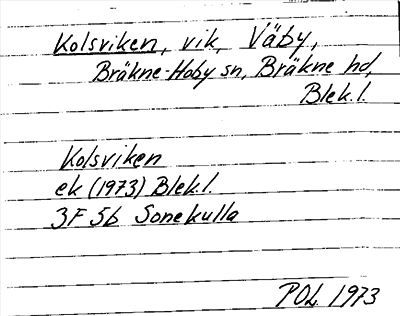 Kolsviken, vik, Väby,
Bräkne-Hoby sn, Bräkne hd,
Blek.l.
Kolsviken
ek (1973) Blek.l.
3F 5b Sonekulla
POL 1973